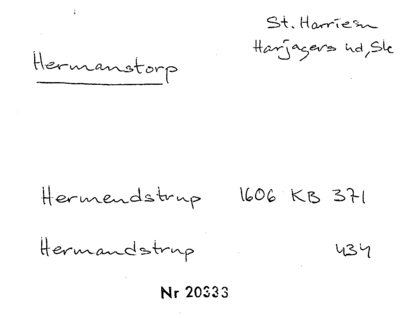 St. Harriesn
Harjagers hd, Sk
Hermanstorp
Hermendstrup 1606 KB 371
Hermandstrup 434
Nr 20333